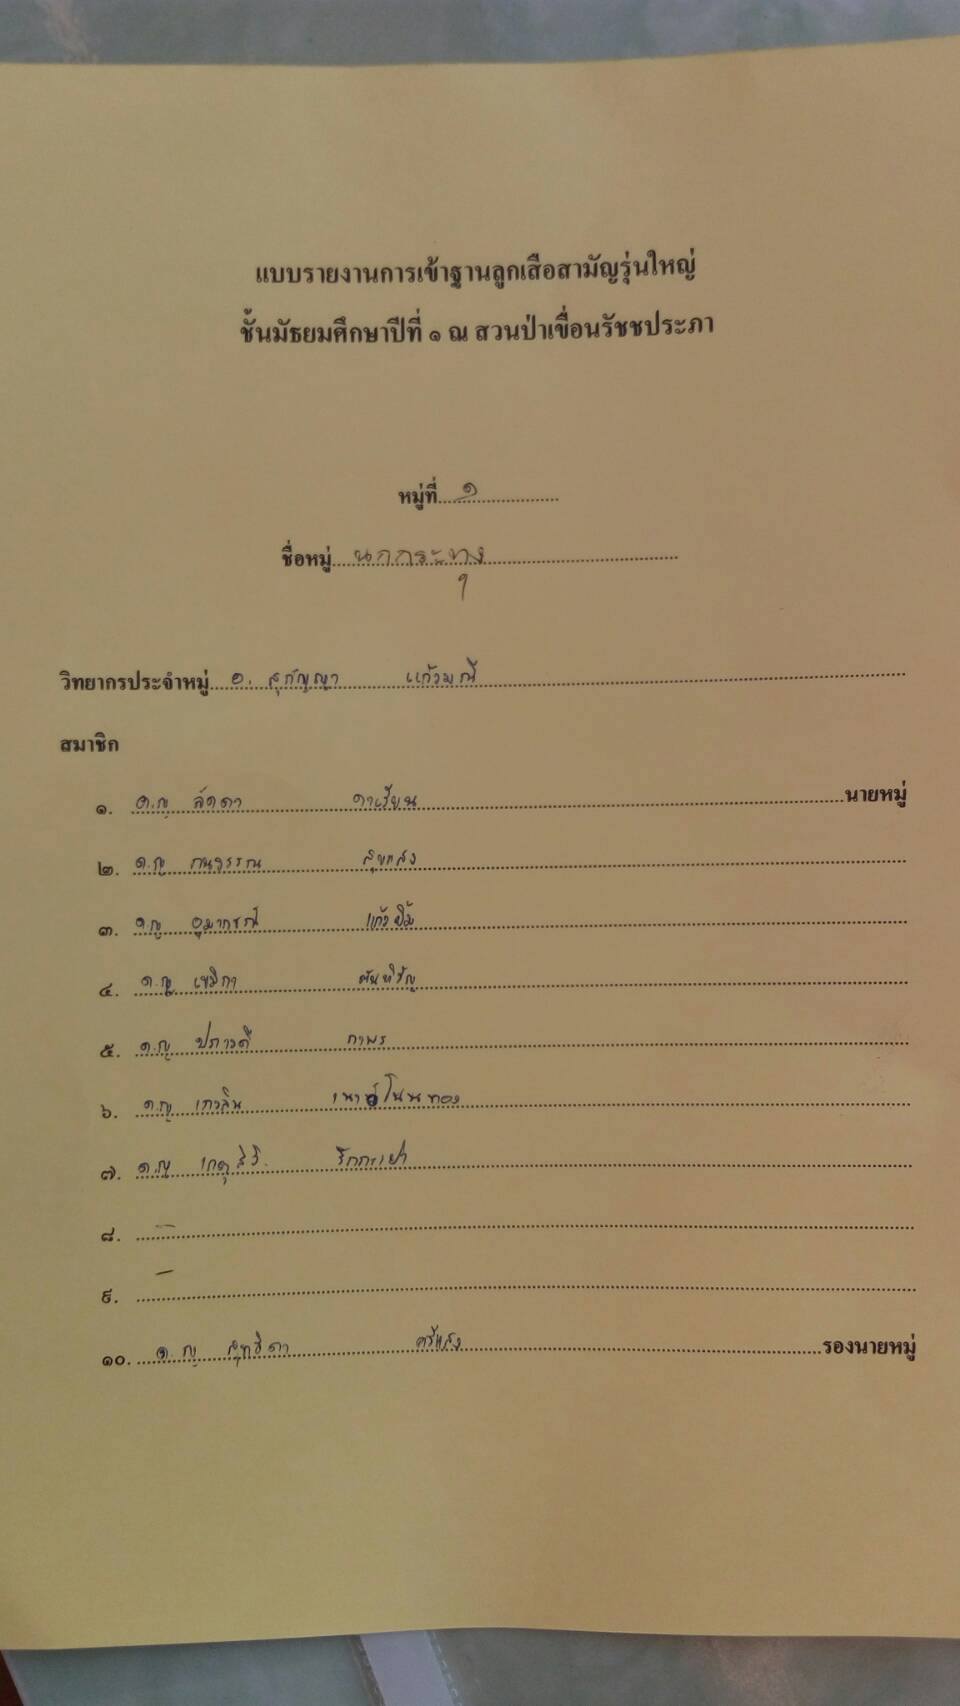 แบบรายงานการเข้าฐานลูกเสือสามัญรุ่นใหญ่
ชั้นมัธยมศึกษาปีที่ ๑ ณ สวนป่าเขื่อนรัชชประภา
หมู่ที่ ๑
ชื่อหมู่ นกกระทุง
วิทยากรประจำหมู่ อ. สุกัญญา แก้วมณี
สมาชิก
๑. ด.ญ ลัดดา ดาเรียน นายหมู่
๒. ด.ญ กนวรรณ สุขแสง
๓. ด.ญ อุมาภรณ์ แก้วยิ้ม
๔. ด.ญ เขมิกา
๕. ด.ญ ปภาวดี กาพร
๖. ด.ญ เกวลิน
๗. ด.ญ เกตุสิริ
๘.
๙.
๑๐. ด.ญ สุทธิดา ศรีแสง รองนายหมู่